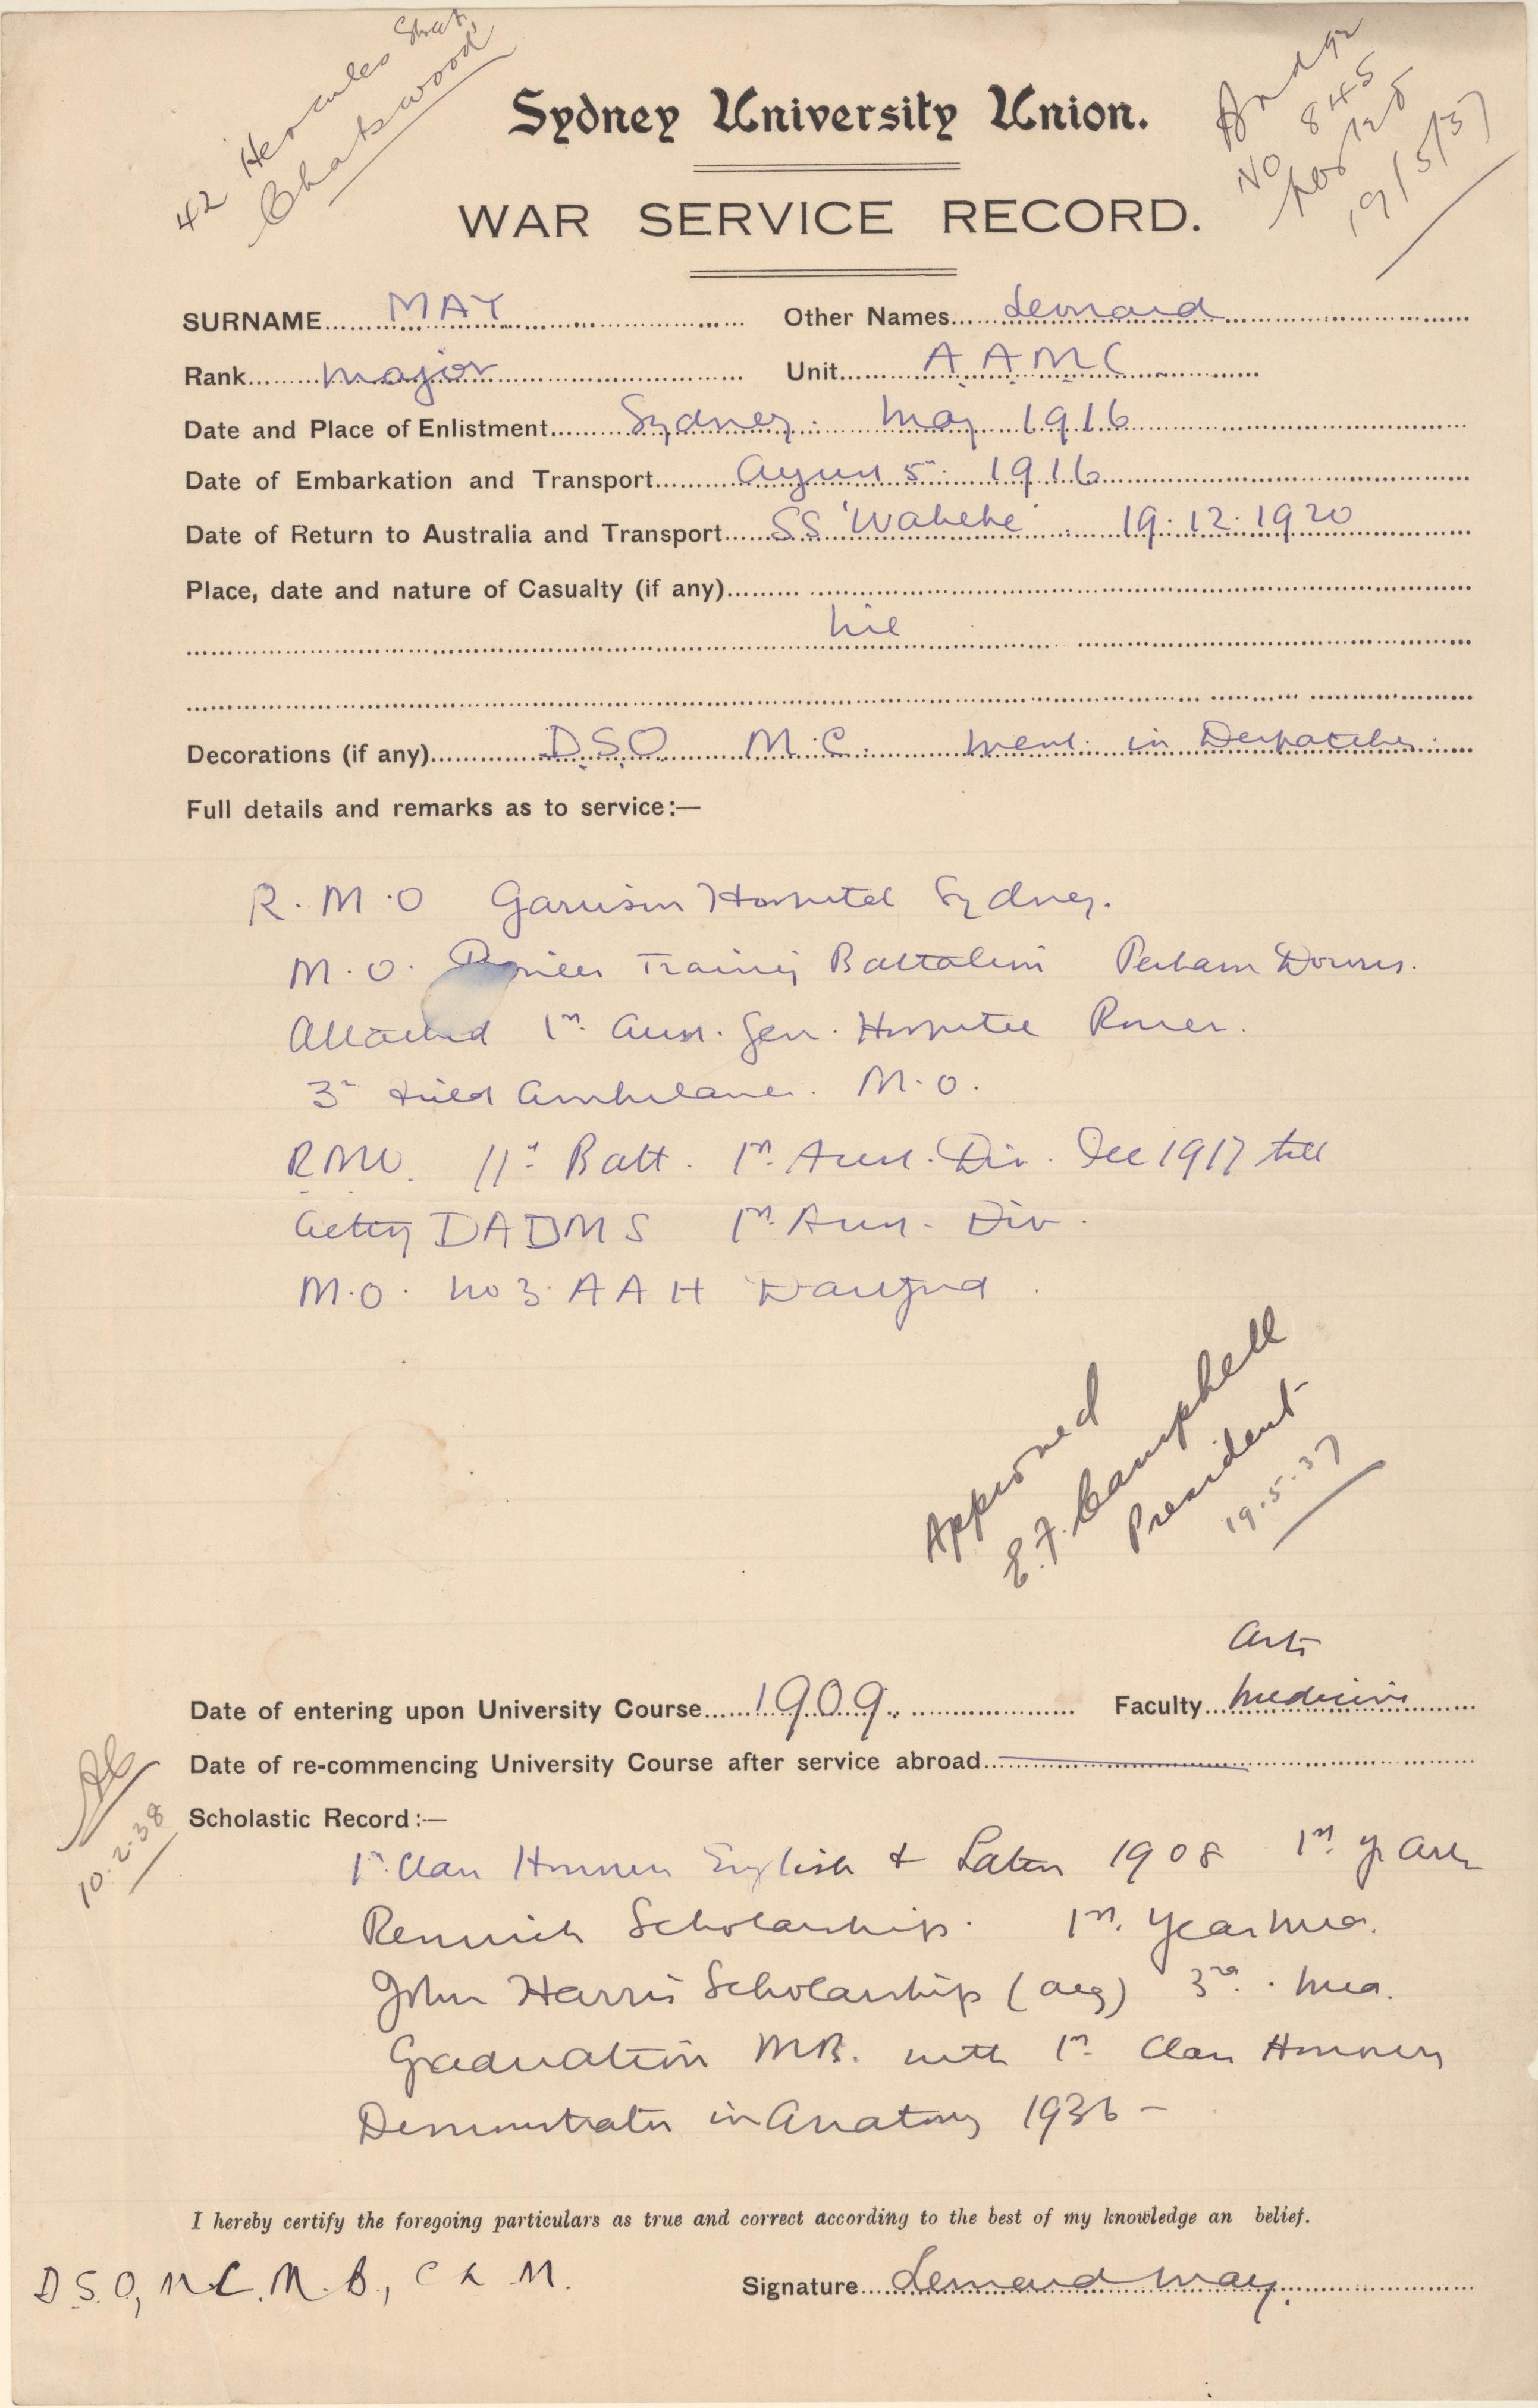 42 Hercules Street
Chatswood
Badge
No 845
posted
19/5/37
Sydney University Union.
WAR SERVICE RECORD.
SURNAME MAY Other Names Leonard
Rank Major Unit A A M C
Date and Place of Enlistment Sydney. May 1916
Date of Embarkation and Transport August 5th 1916
Date of Return to Australia and Transport SS 'Wahehe' 19.12.1920
Place, date and nature of Casualty (if any)
nil
Decorations (if any) D.S.O M.C. Ment. in Despatches
Full details and remarks as to service:—
R.M.O Garrison Hospital Sydney.
M.O. Pioneer Training Battalion Perham Downs.
Attached 1st Aust. Gen. Hospital Rouen.
3rd Field Ambulance. M.O.
RMO. 11th Batt. 1st Aust. Div. Dec 1917 till
Acting DADMS 1st Aust. Div.
M.O. No 3. A A H Dartford.
Approved
E.F. Campbell
President
19.5.37
Arts
Date of entering upon University Course 1909. Faculty Medicine
Date of re-commencing University Course after service abroad
10.2.38
Scholastic Record:—
1st Class Honours English & Latin 1908 1st yr Arts
Renwick Scholarship. 1st Year Med.
John Harris Scholarship (aeq) 3rd. Med.
Graduation MB. with 1st Class Honours
Demonstrator in Anatomy 1936 –
I hereby certify the foregoing particulars as true and correct according to the best of my knowledge an belief.
D.S.O, M.C. M.B., Ch M.
Signature Leonard May.